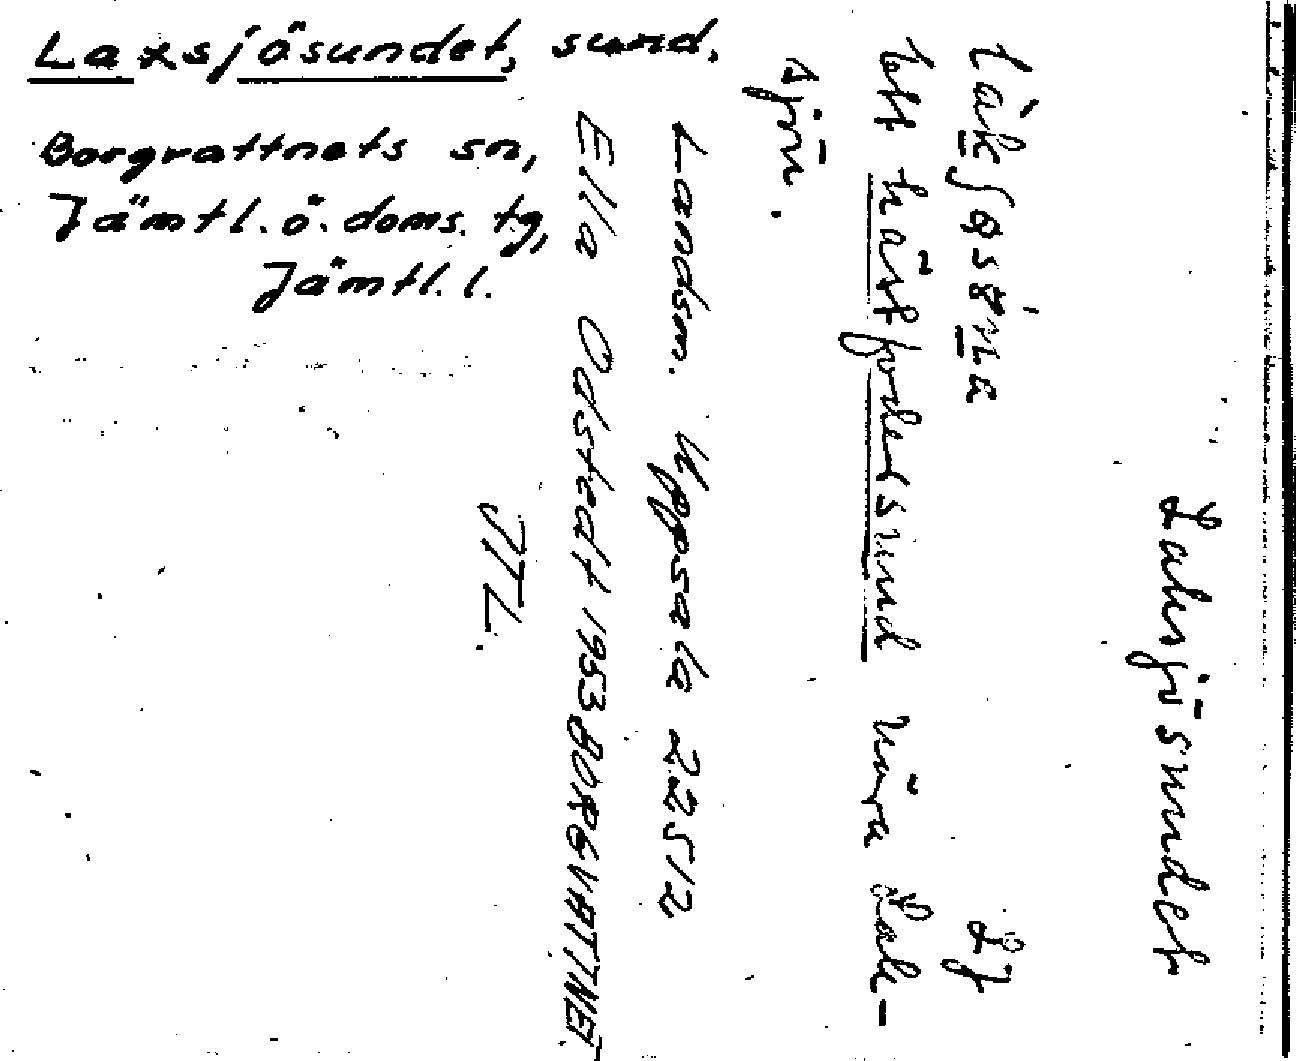 Laxsjösundet, sund.
Borgvattnets sn,
Jämtl. ö. doms. tg,
Jämtl. l.
Laksjösundet
Lf
ett håst fodersund nära Lak-
sjön.
Landsm. Uppsala 22512
Ella Odstedt 1953 BORGVATTNET
JTL.